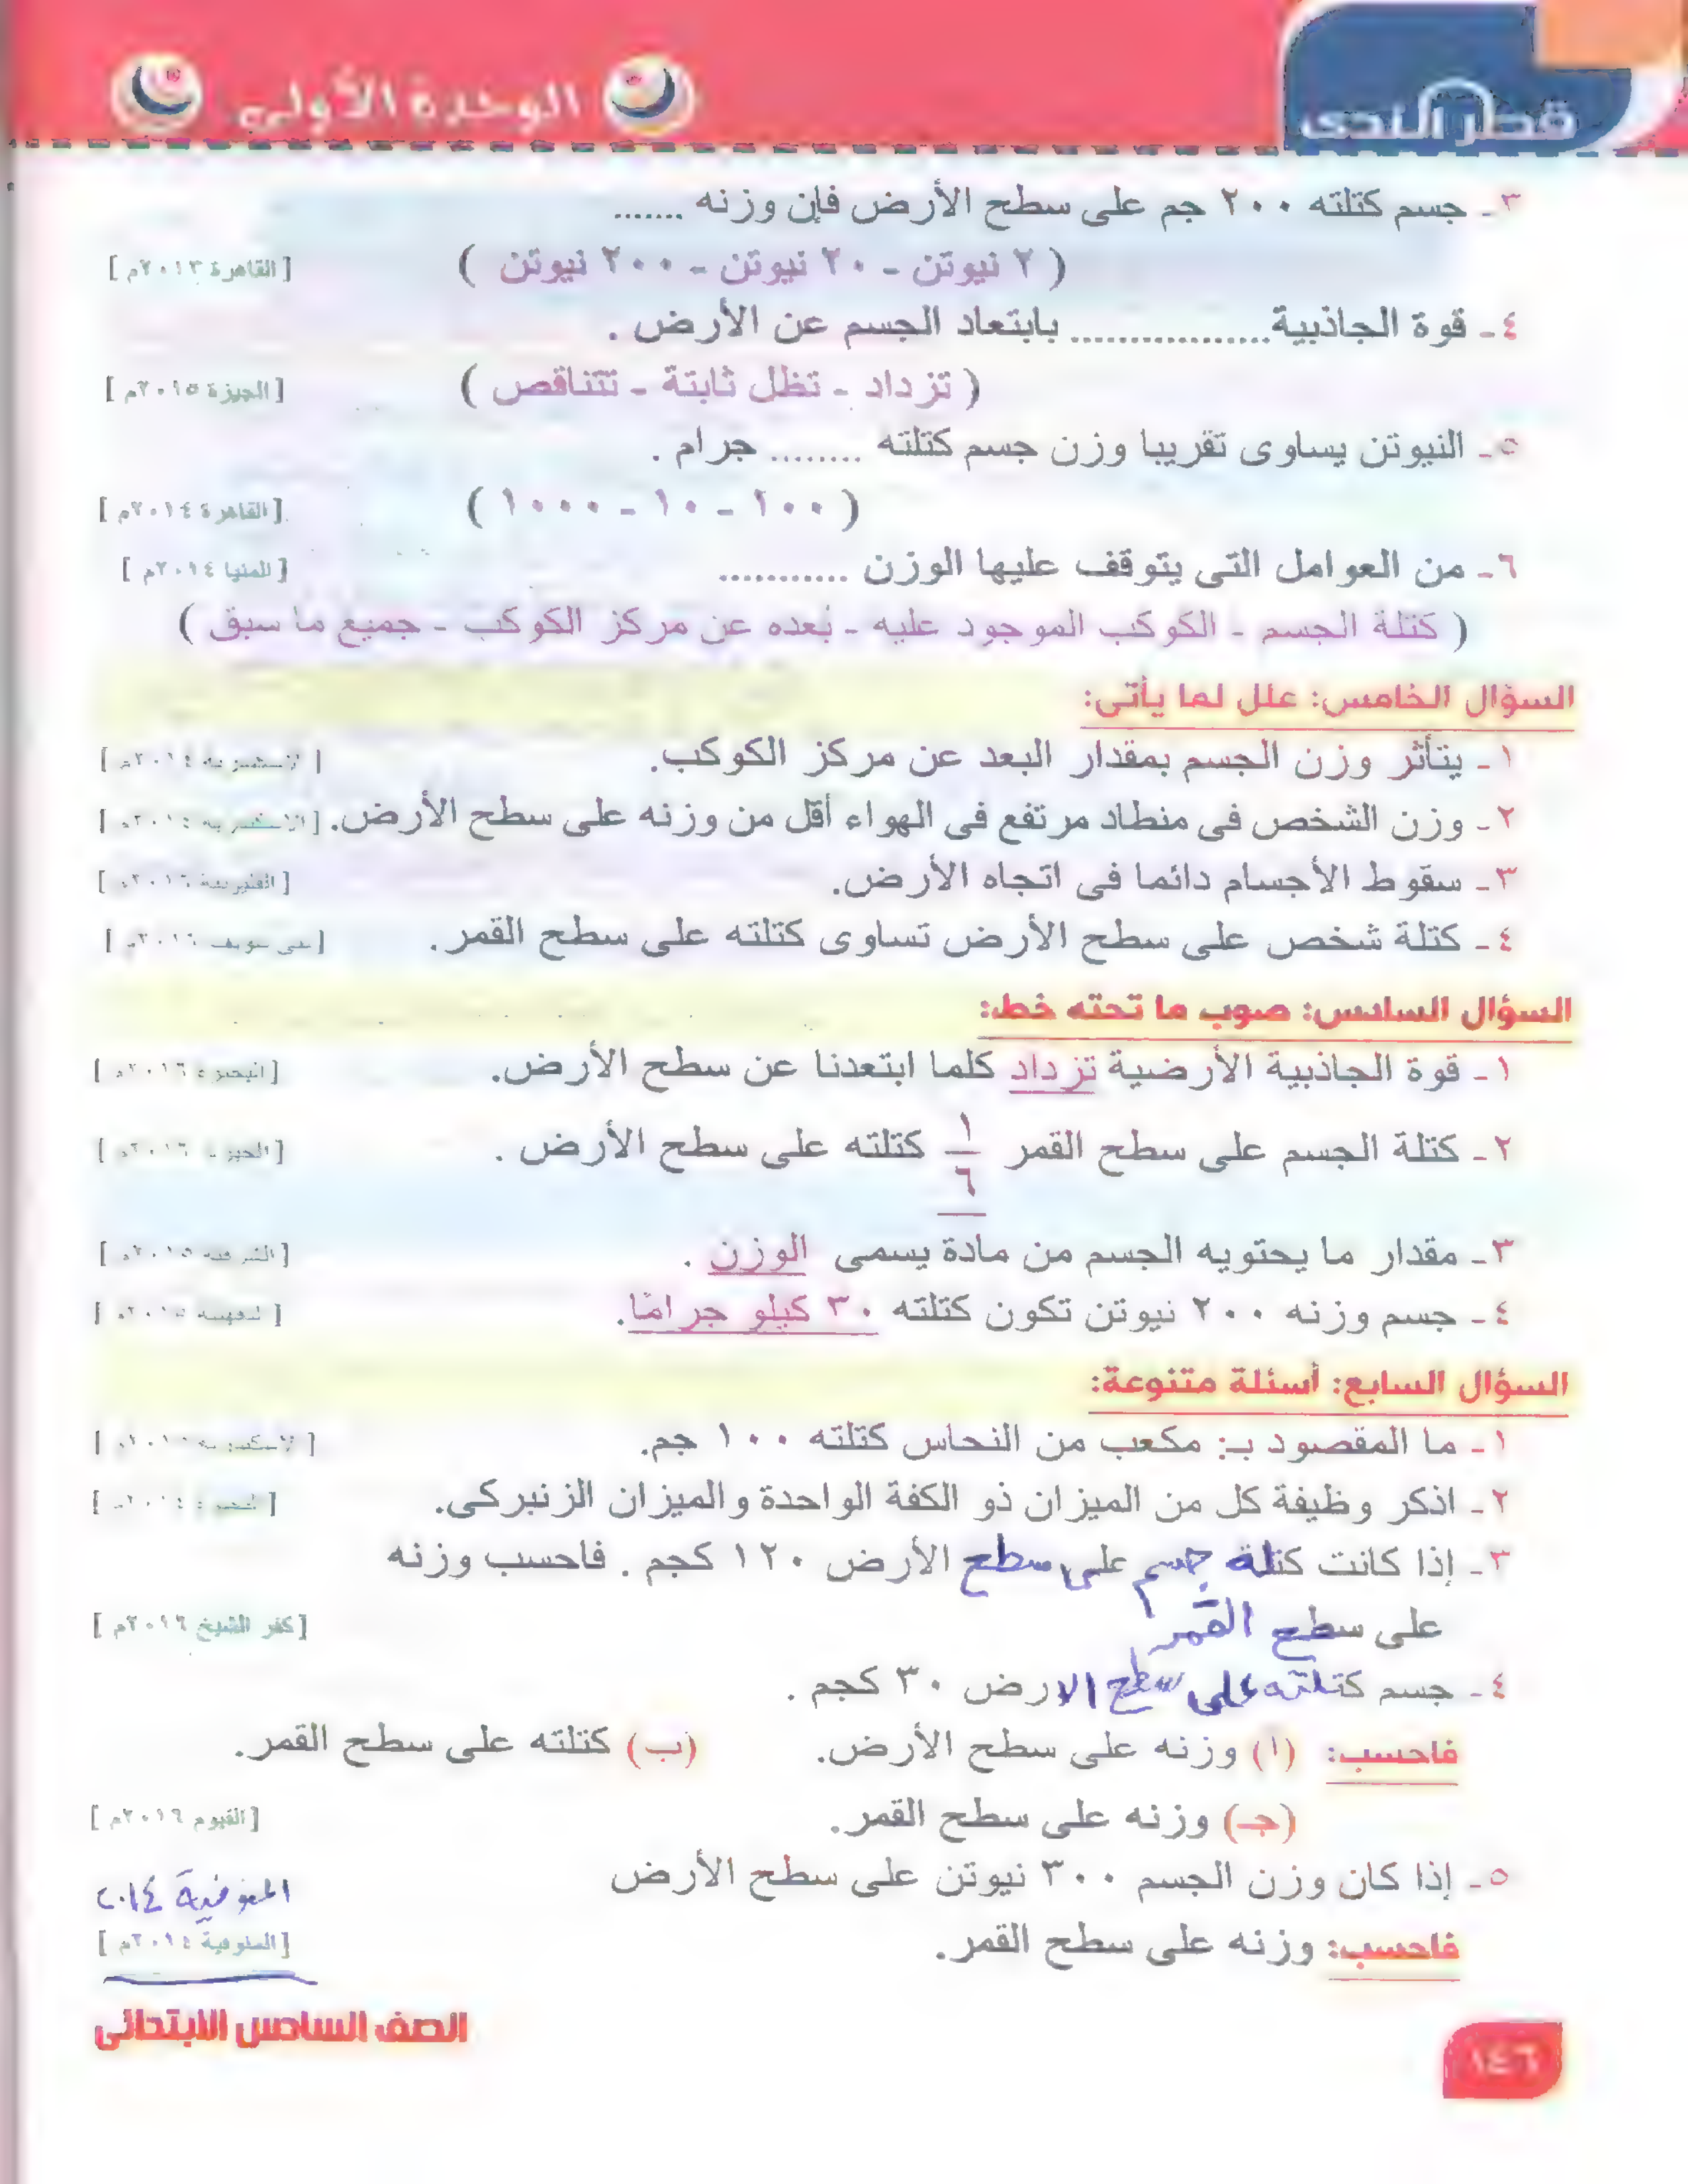 قطر الندى
الوحدة الأولى
٣ - جسم كتلته ٢٠٠ جم على سطح الأرض فإن وزنه .......
( ٢ نيوتن - ٢٠ نيوتن - ٢٠٠ نيوتن ) [ القاهرة ٢٠١٣م ]
٤ - قوة الجاذبية................. بابتعاد الجسم عن الأرض .
( تزداد - تظل ثابتة - تتناقص ) [ الجيزة ٢٠١٥م ]
٥ - النيوتن يساوى تقريبا وزن جسم كتلته ........ جرام .
( ١٠٠ - ١٠ - ١٠٠٠ ) [ القاهرة ٢٠١٤م ]
٦ - من العوامل التى يتوقف عليها الوزن ........... [ المنيا ٢٠١٤م ]
( كتلة الجسم - الكوكب الموجود عليه - بُعده عن مركز الكوكب - جميع ما سبق )
السؤال الخامس: علل لما يأتى:
١ - يتأثر وزن الجسم بمقدار البعد عن مركز الكوكب.
٢ - وزن الشخص فى منطاد مرتفع فى الهواء أقل من وزنه على سطح الأرض.
٣ - سقوط الأجسام دائما فى اتجاه الأرض.
٤ - كتلة شخص على سطح الأرض تساوى كتلته على سطح القمر. [ بنى سويف ٢٠١٦م ]
السؤال السادس: صوب ما تحته خط:
١ - قوة الجاذبية الأرضية تزداد كلما ابتعدنا عن سطح الأرض.
٢ - كتلة الجسم على سطح القمر ١/٦ كتلته على سطح الأرض .
٣ - مقدار ما يحتويه الجسم من مادة يسمى الوزن .
٤ - جسم وزنه ٢٠٠ نيوتن تكون كتلته ٣٠ كيلو جرامًا.
السؤال السابع: أسئلة متنوعة:
١ - ما المقصود بـ: مكعب من النحاس كتلته ١٠٠ جم.
٢ - اذكر وظيفة كل من الميزان ذو الكفة الواحدة والميزان الزنبركى.
٣ - إذا كانت كتلة جسم على سطح الأرض ١٢٠ كجم . فاحسب وزنه
على سطح القمر [ كفر الشيخ ٢٠١٦م ]
٤ - جسم كتلته على سطح الارض ٣٠ كجم .
فاحسب: (أ) وزنه على سطح الأرض. (ب) كتلته على سطح القمر.
(جـ) وزنه على سطح القمر. [ الفيوم ٢٠١٦م ]
٥ - إذا كان وزن الجسم ٣٠٠ نيوتن على سطح الأرض
المنوفية ٢٠١٤
فاحسب: وزنه على سطح القمر. [ المنوفية ٢٠١٤م ]
الصف السادس الابتدائى
١٤٦